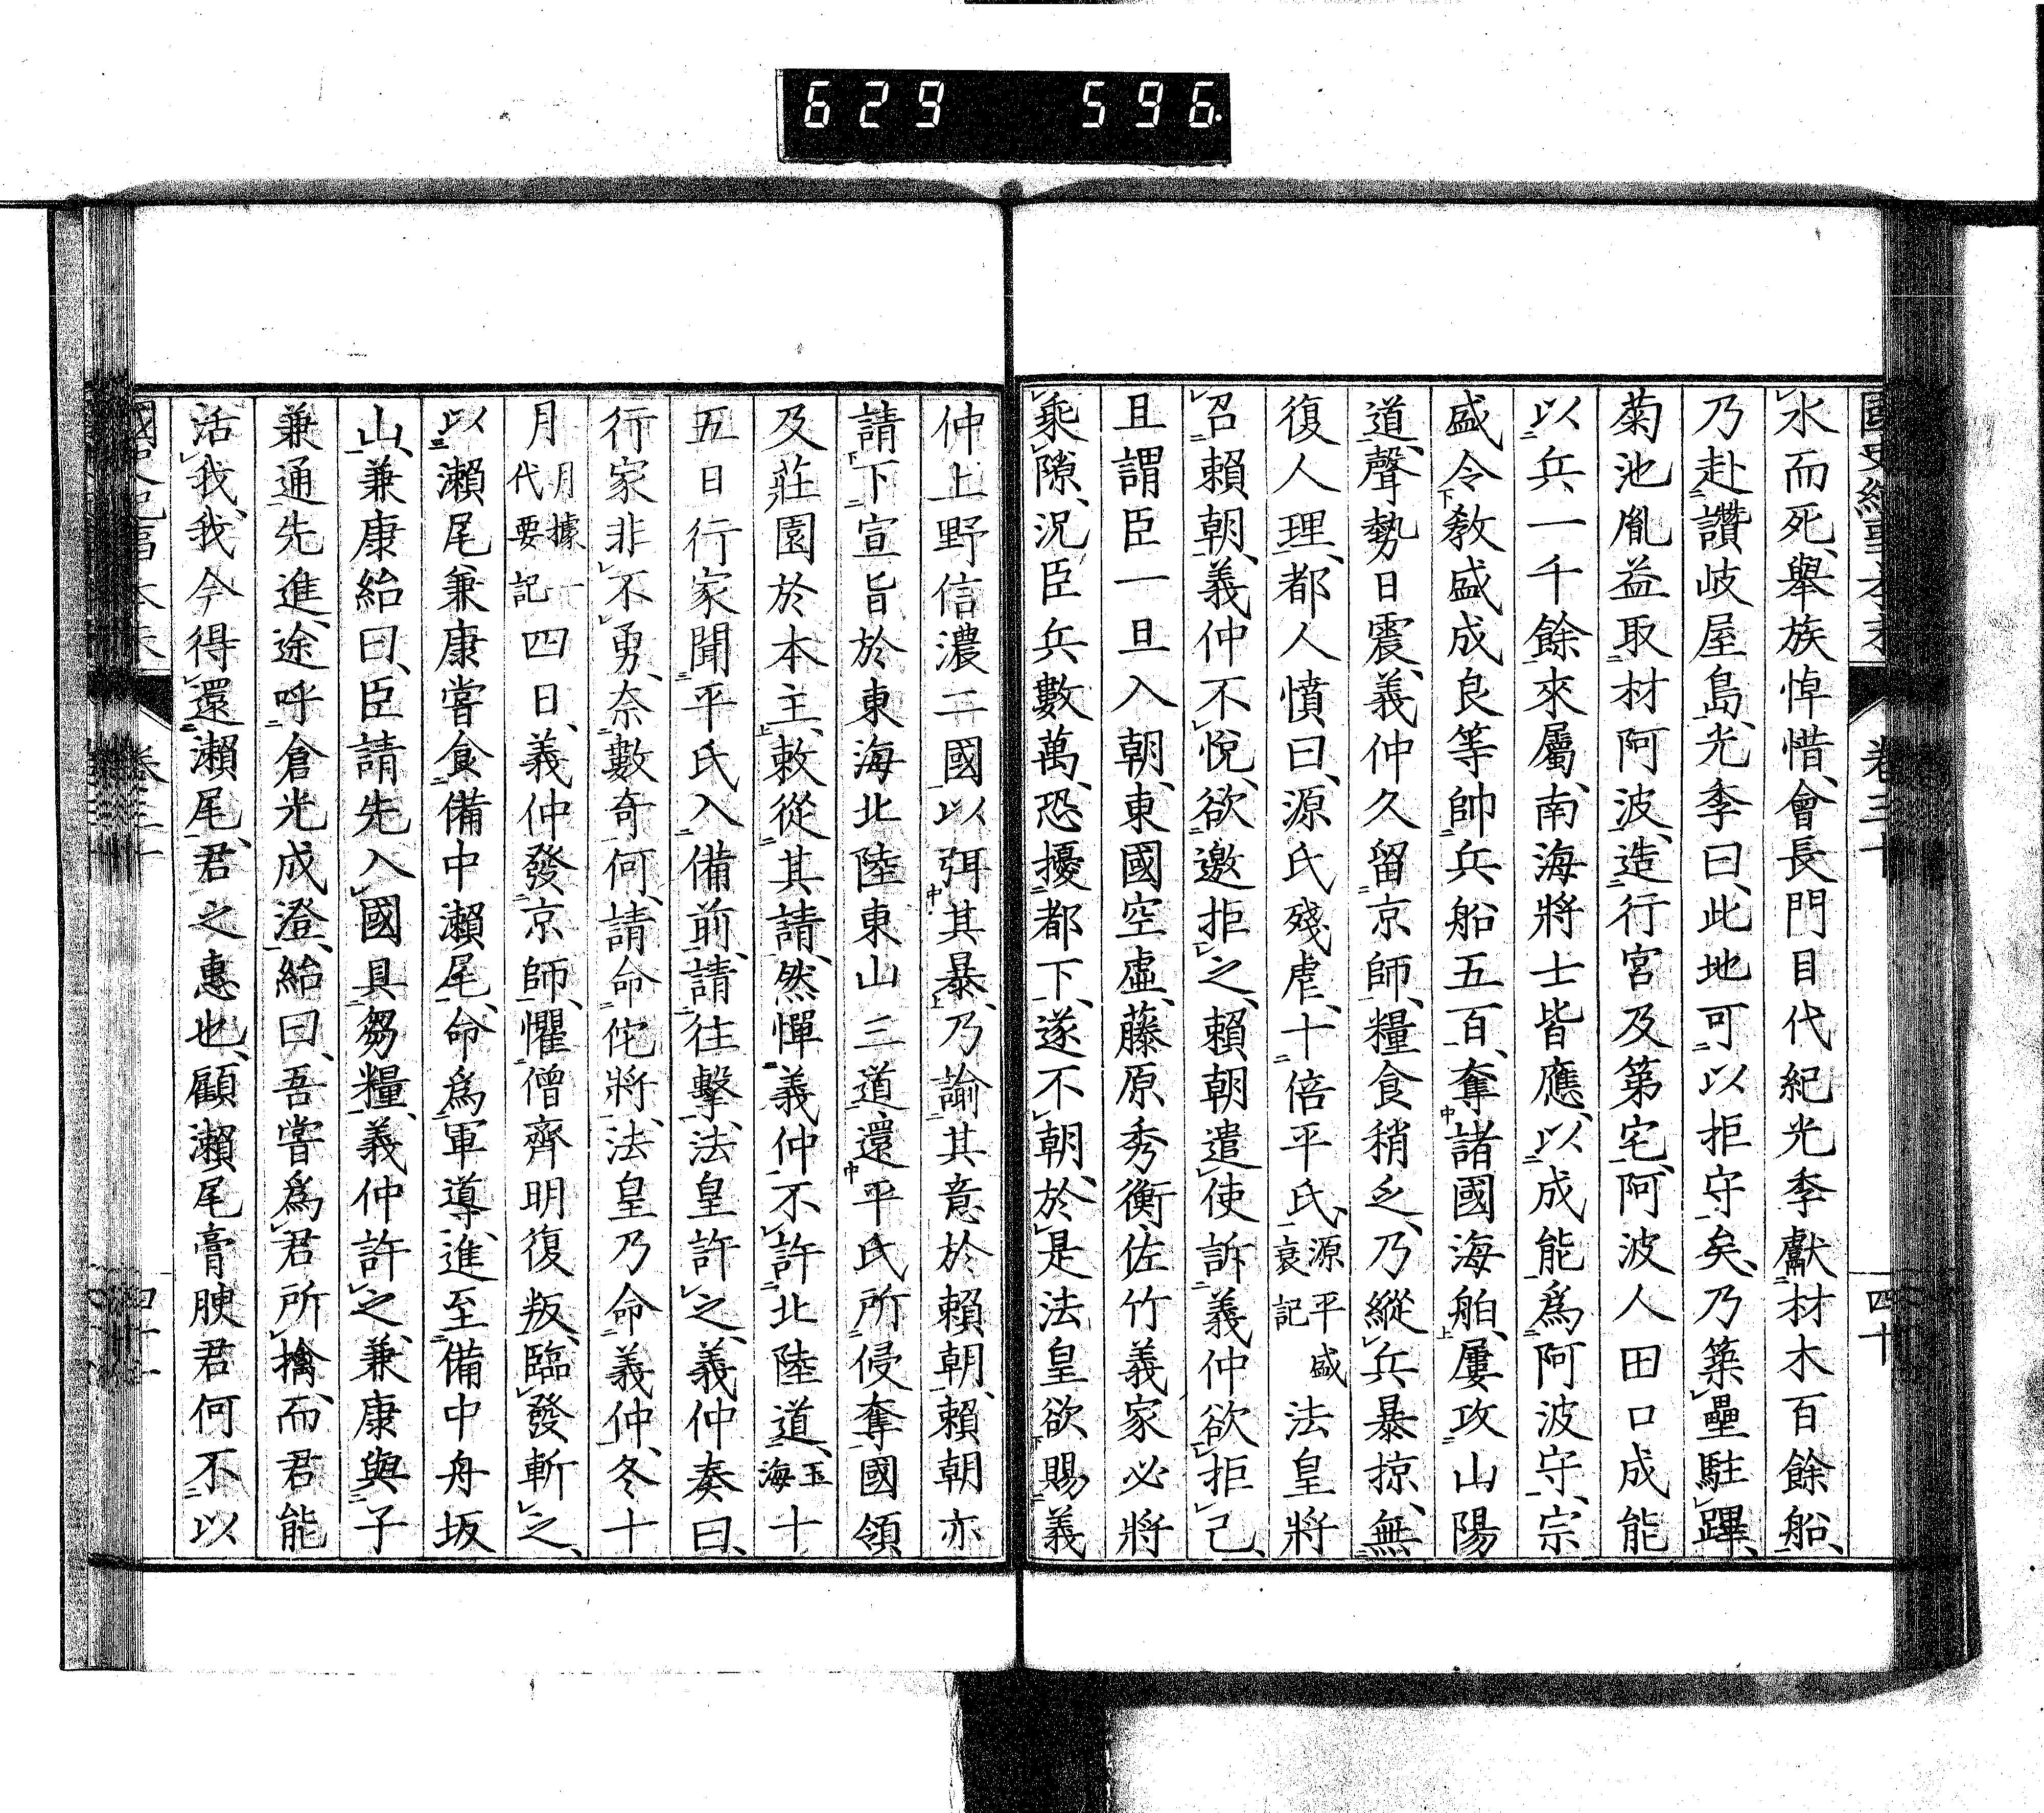 629 596
水而死、舉族悼惜、會長門目代紀光季獻材木百餘船、
乃赴讚岐屋島、光季曰、此地可以拒守矣、乃築壘駐蹕、
菊池胤益取材阿波、造行宮及第宅、阿波人田口成能
以兵一千餘來屬、南海將士皆應、以成能爲阿波守、宗
盛令教盛成良等帥兵船五百、奪諸國海舶、屢攻山陽
道、聲勢日震、義仲久留京師、糧食稍乏、乃縱兵暴掠、無
復人理、都人憤曰、源氏殘虐、十倍平氏、源平盛衰記法皇將
召賴朝、義仲不悅、欲邀拒之、賴朝遣使訴義仲欲拒己、
且謂臣一旦入朝、東國空虛、藤原秀衡佐竹義家必將
乘隙、況臣兵數萬、恐擾都下、遂不朝、於是法皇欲賜義
仲上野信濃二國、以弭其暴、乃諭其意於賴朝、賴朝亦
請下宣旨於東海北陸東山三道、還平氏所侵奪國領
及莊園於本主、敕從其請、然憚義仲、不許北陸道、玉海十
五日行家聞平氏入備前、請往擊、法皇許之、義仲奏曰、
行家非不勇、奈數奇何、請命佗將、法皇乃命義仲、冬十
月月據一代要記四日、義仲發京師、懼僧齊明復叛、臨發斬之、
以瀨尾兼康嘗食備中瀨尾、命爲軍導、進至備中舟坂
山、兼康紿曰、臣請先入國具芻糧、義仲許之、兼康與子
兼通先進、途呼倉光成澄、紿曰、吾嘗爲君所擒、而君能
活我、我今得還瀨尾、君之惠也、顧瀨尾膏腴、君何不以